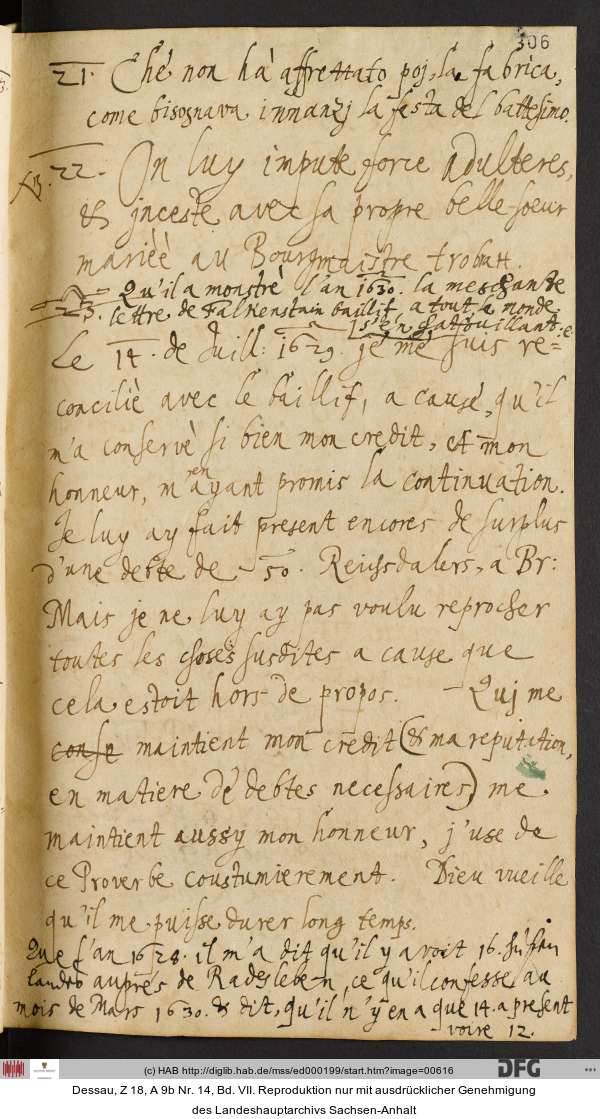 306
21. Ché non há affrettato poj, la fabrica,
come bisognava innanzj la festa del battesimo.
NB. 22. On luy impute force adulteres,
& jnceste avec sa propre belle-soeur
mariéé au Bourgmaistre trobatt.
23. Qu'il a monstrè l'an 1630. la meschante
lettre de Falkenstain baillif, a tout le monde,
s'en chattouillant.
Le 14. de Juill: 1629. je me suis re=
conciliè avec le baillif, a causè, qu'il
m'a conservè si bien mon credit, et mon
honneur, m'en ayant promis la continuation.
Je luy ay fait present encores de surplus
d'une debte de 50. Reichsdalers, a Br:
Mais je ne luy ay pas voulu reprocher
toutes les choses susdites a cause que
cela estoit hors de propos. - Quj me
conse maintient mon credit (& ma reputation,
en matiere de debtes necessaires) me
maintient aussy mon honneur, j'use de
ce Proverbe coustumierement. Dieu vueille
qu'il me puisse durer long temps.
Que l'an 1628. il m'a dit qu'il y avoit 16. hufen
landes auprès de Radesleben, ce qu'il confesse au
mois de Mars 1630. & dit, qu'il n'y en a que 14. a present
voire 12.
(c) HAB http://diglib.hab.de/mss/ed000199/start.htm?image=00616
DFG
Dessau, Z 18, A 9b Nr. 14, Bd. VII. Reproduktion nur mit ausdrücklicher Genehmigung
des Landeshauptarchivs Sachsen-Anhalt